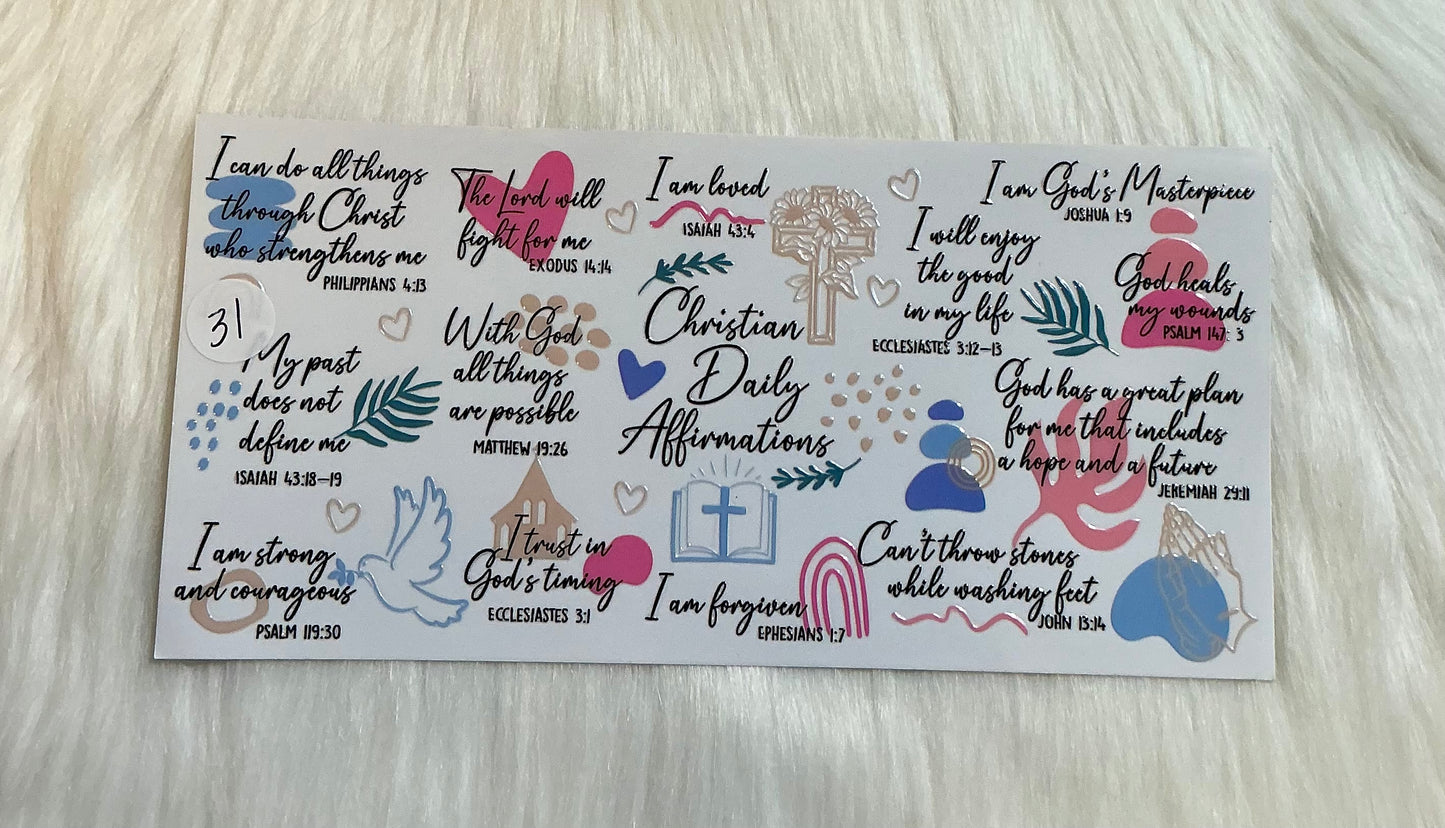 I can do all things
through Christ
who strengthens me
PHILIPPIANS 4:13
The Lord will
fight for me
EXODUS 14:14
I am loved
ISAIAH 43:4
I am God's Masterpiece
JOSHUA 1:9
I will enjoy
the good
in my life
ECCLESIASTES 3:12-13
God heals
my wounds
PSALM 147:3
31
My past
does not
define me
ISAIAH 43:18-19
With God
all things
are possible
MATTHEW 19:26
Christian
Daily
Affirmations
God has a great plan
for me that includes
a hope and a future
JEREMIAH 29:11
I am strong
and courageous
PSALM 119:30
I trust in
God's timing
ECCLESIASTES 3:1
I am forgiven
EPHESIANS 1:7
Can't throw stones
while washing feet
JOHN 13:14